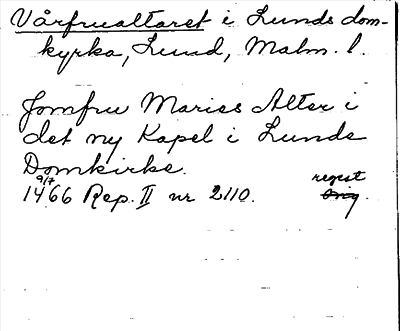 Vårfrualtaret i Lunds dom-
kyrka, Lund, Malm. l.
Jomfru Maries Alter i
det ny Kapel i Lunde
Domkirke.
9/7
1466 Rep. II nr 2110. regest
orig.